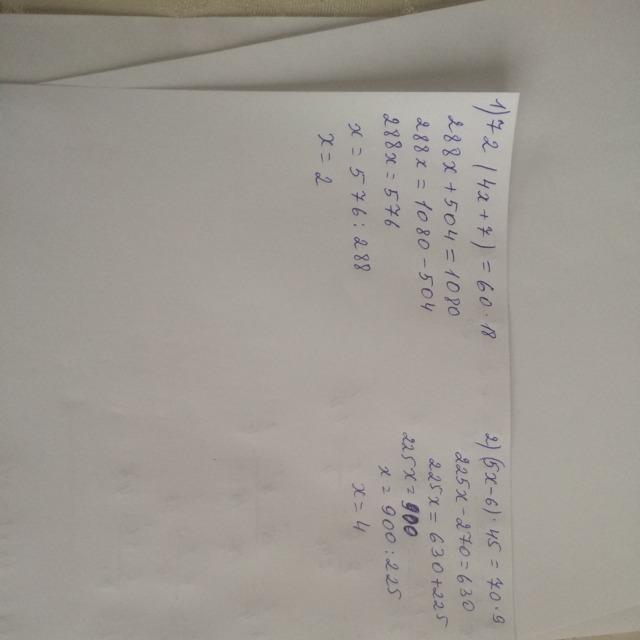 1) 72 (4x+7) = 60·18
288x+504=1080
288x = 1080-504
288x=576
x = 576:288
x = 2
2) (5x-6)·45 = 70·9
225x-270=630
225x = 630+225
225x=900
x = 900:225
x = 4